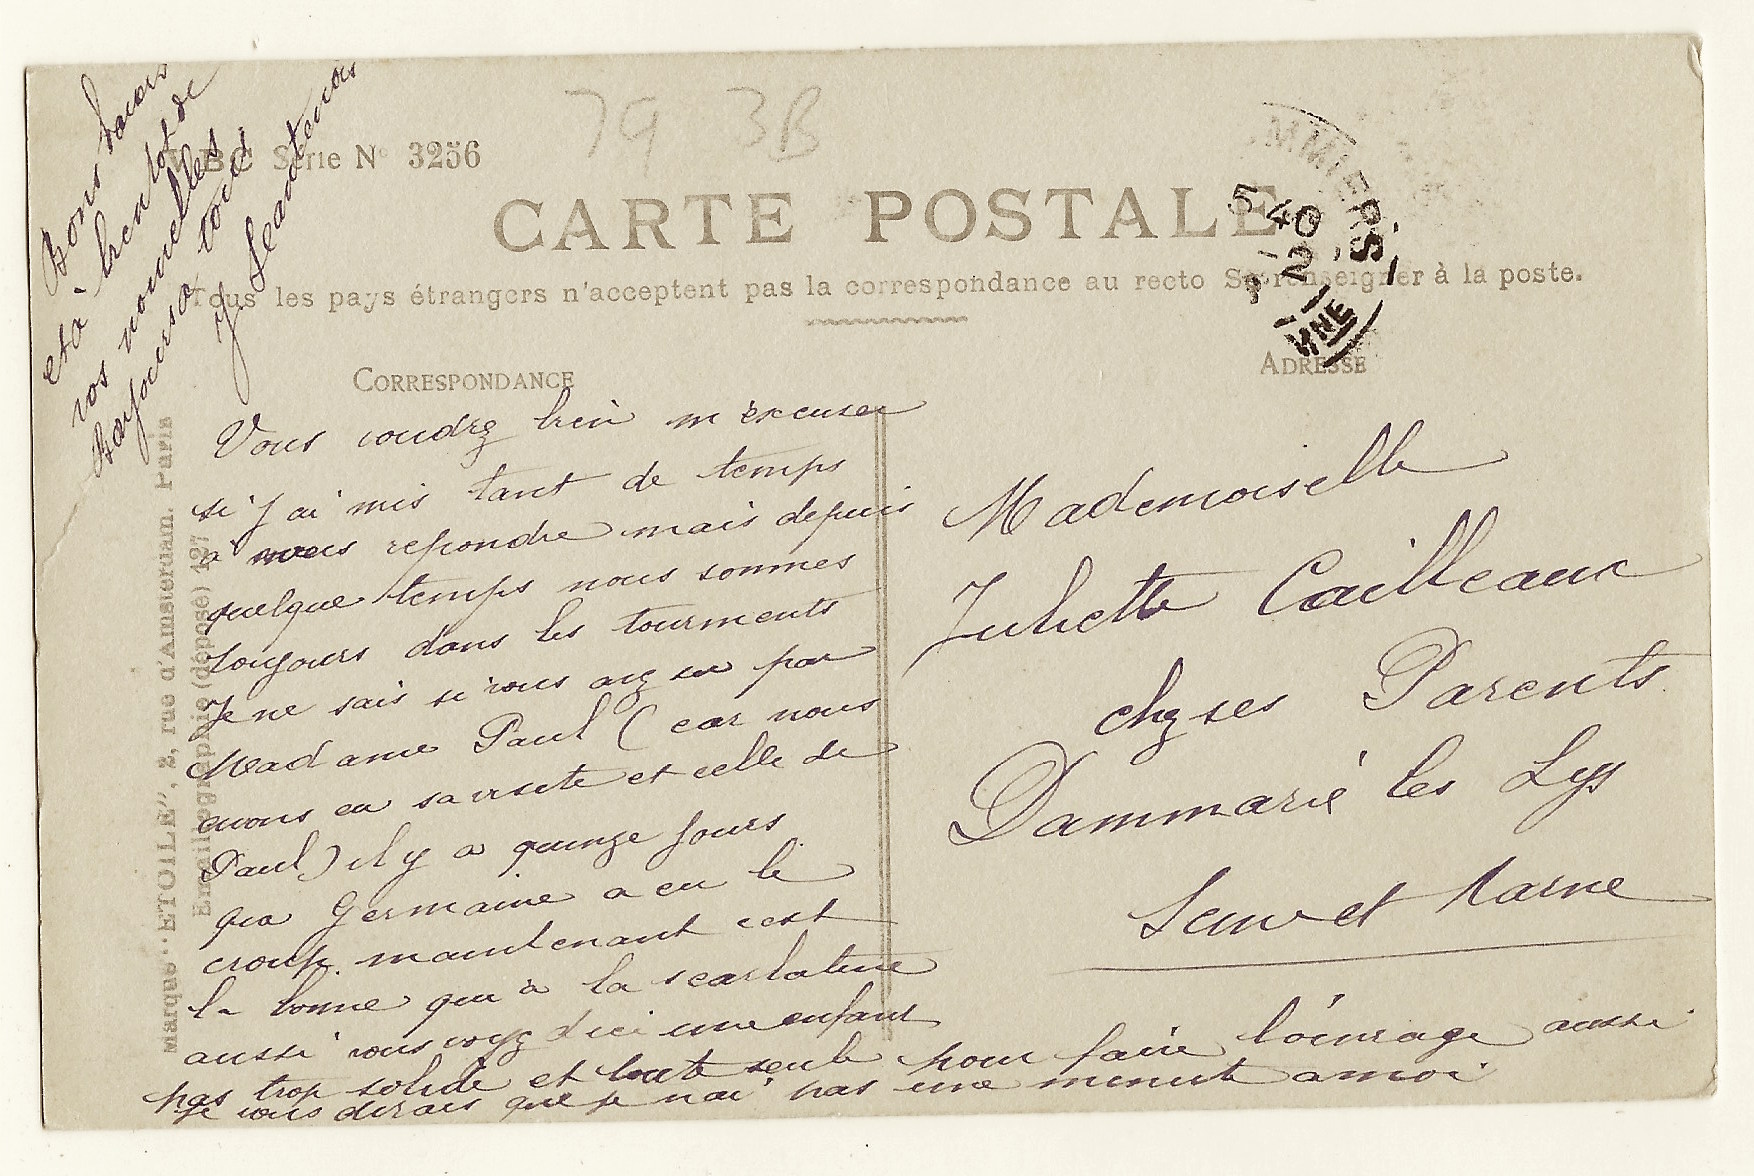 79 3B
VBC Série N° 3256
CARTE POSTALE
Tous les pays étrangers n'acceptent pas la correspondance au recto Se renseigner à la poste.
CORRESPONDANCE
ADRESSE
MMIERS
5 40
2
MNE
Vous voudrez bien m'excuser
si j'ai mis tant de temps
a vous repondre mais depuis
quelque temps nous sommes
toujours dans les tourments
Je ne sais si vous avez su par
Madame Paul (car nous
avons eu sa visite et celle de
Paul) il y a quinze jours
que Germaine a eu le
croup. maintenant c'est
la bonne qui a la scarlatine
aussi vous voyez d'ici une enfant
pas trop solide et toute seule pour faire l'ouvrage aussi
je vous dirais que je n'ai pas une minute a moi
Bons baisers
et à bientot de
vos nouvelles
Bonjours a tous
Y Leautenois
Mademoiselle
Juliette Cailleaux
chez ses Parents
Dammarié les Lys
Seine et Marne
Marque "ETOILE", 2, rue d'Amsterdam. Paris
Emaillographie (déposé) 127